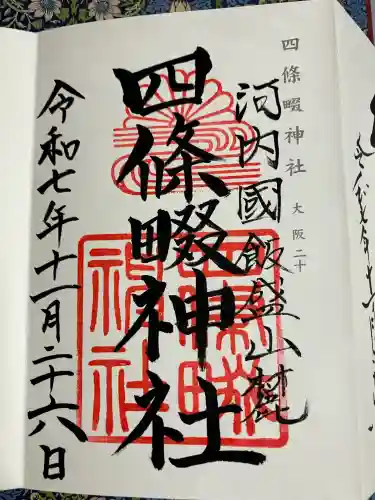 四條畷神社 大阪二十
河内國飯盛山麓
四條畷神社
四條畷神社
令和七年十一月二十六日